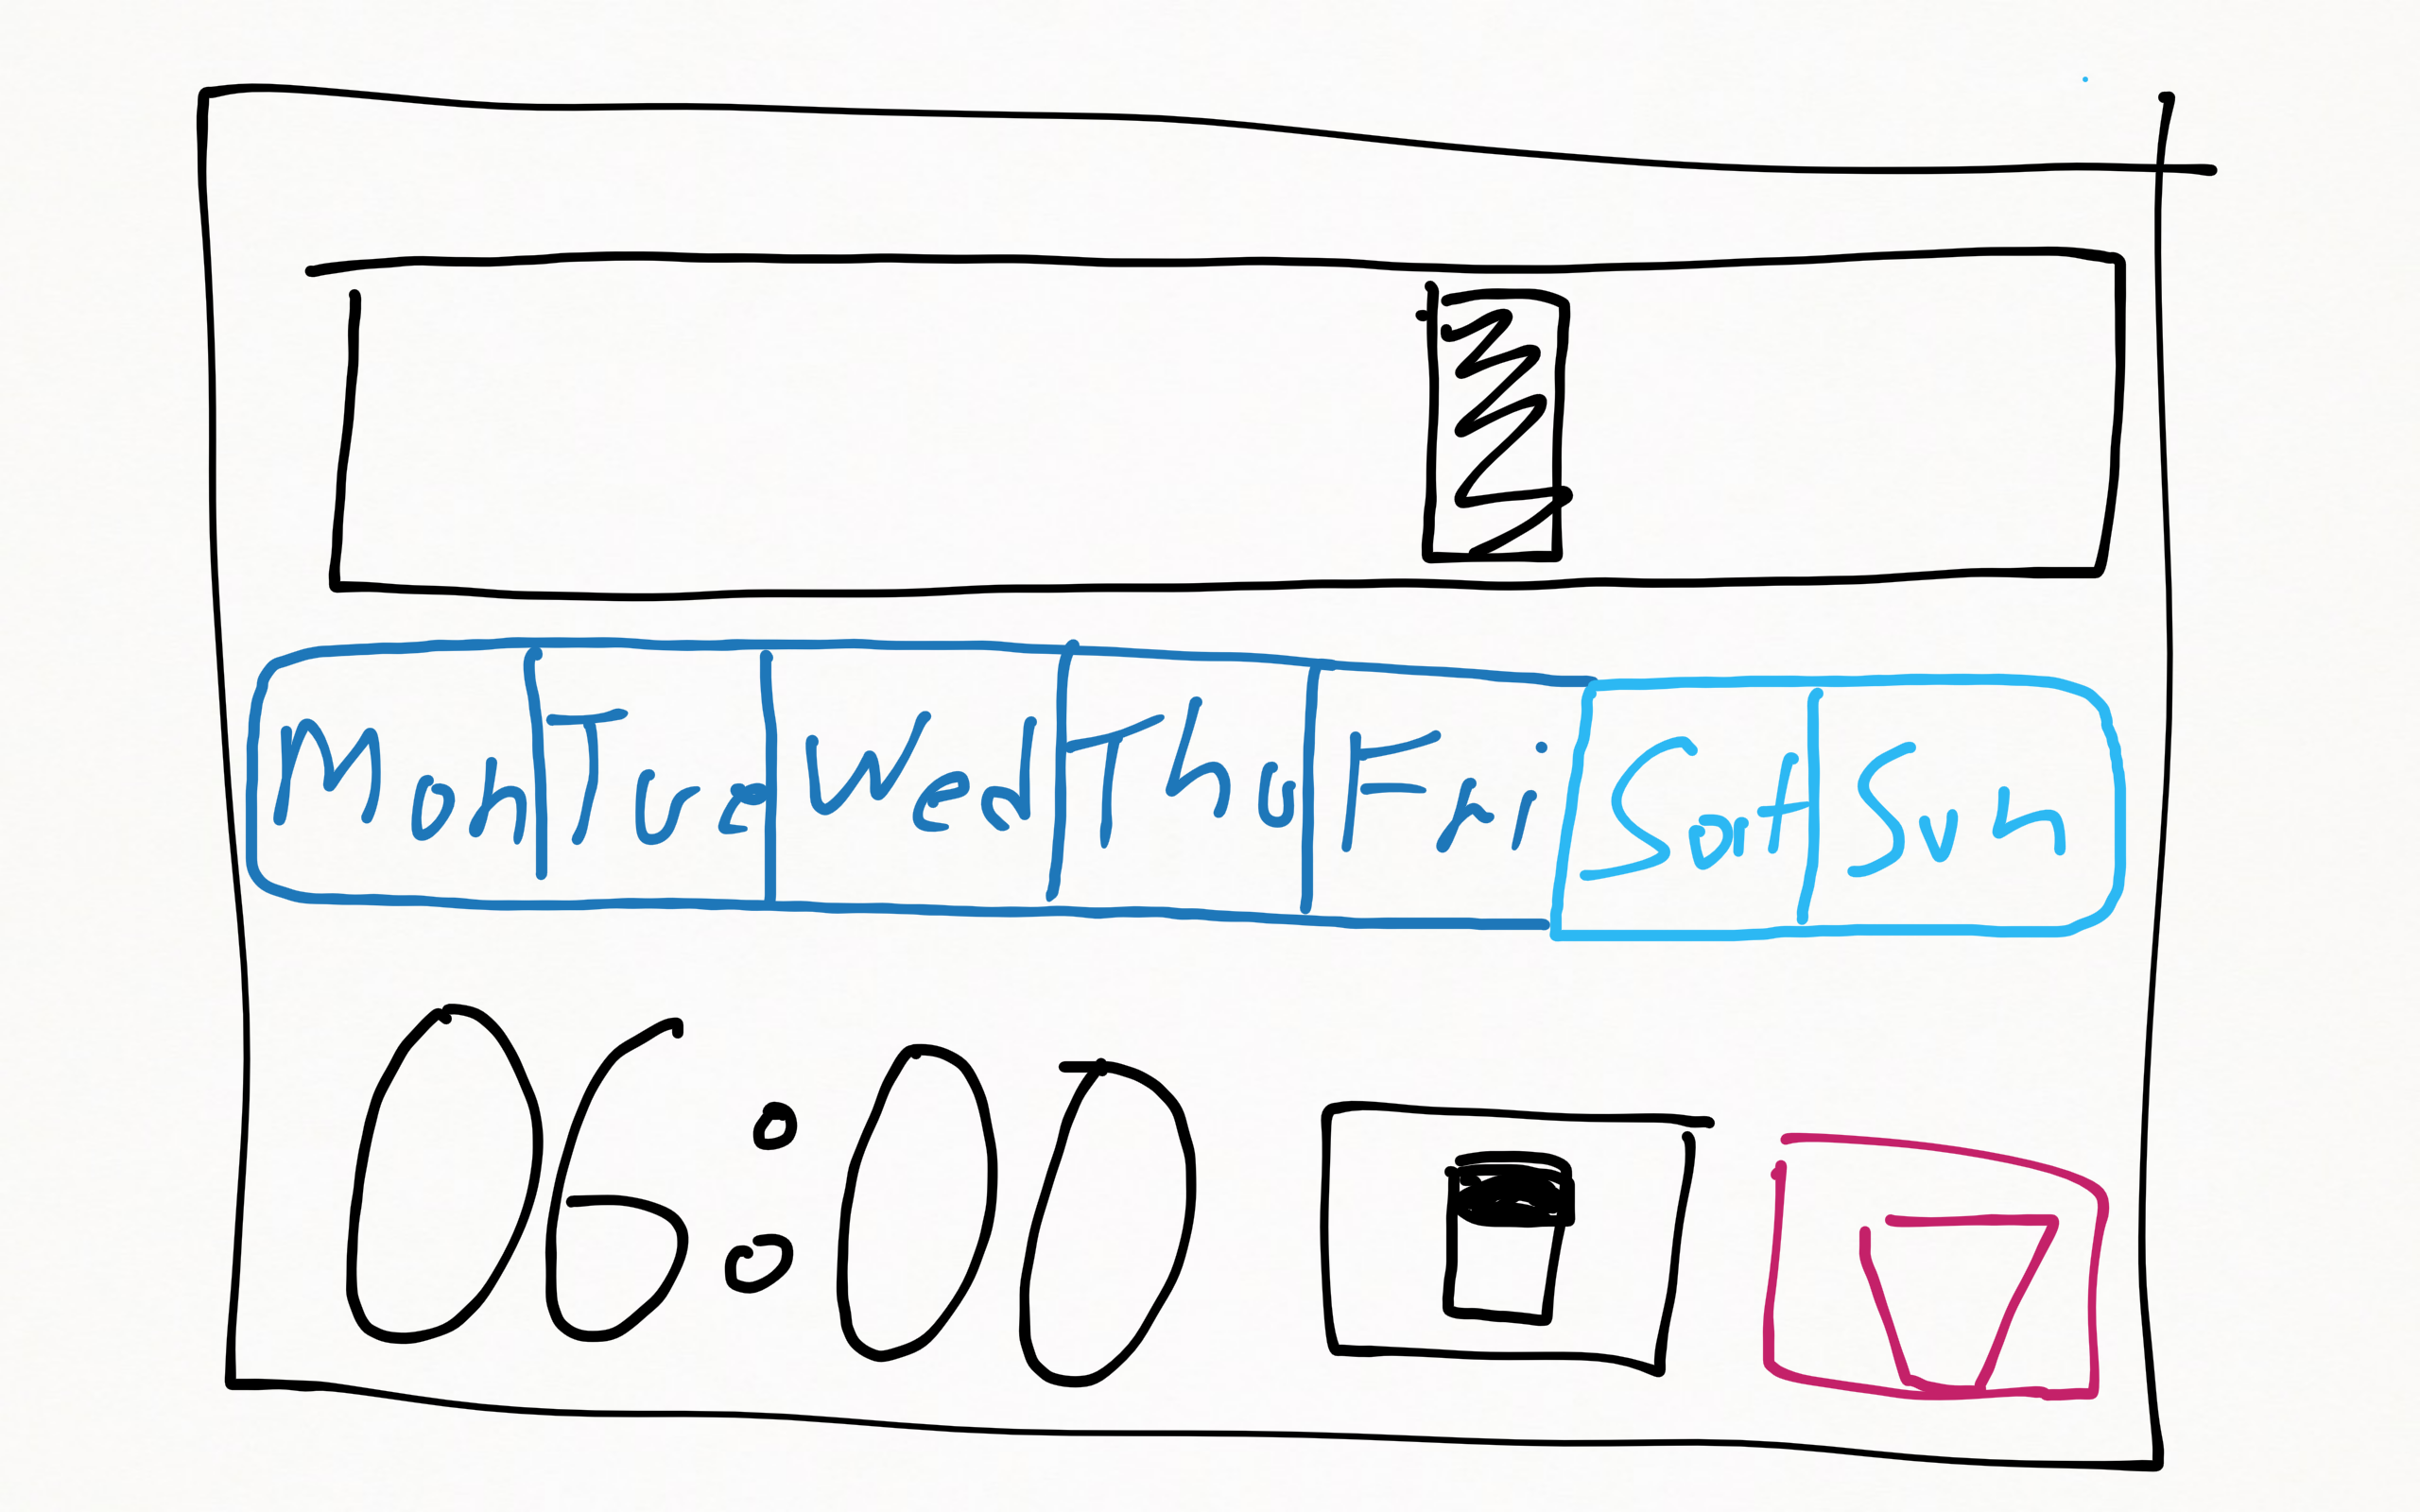 Mon Tue Wed Thu Fri Sat Sun
06:00